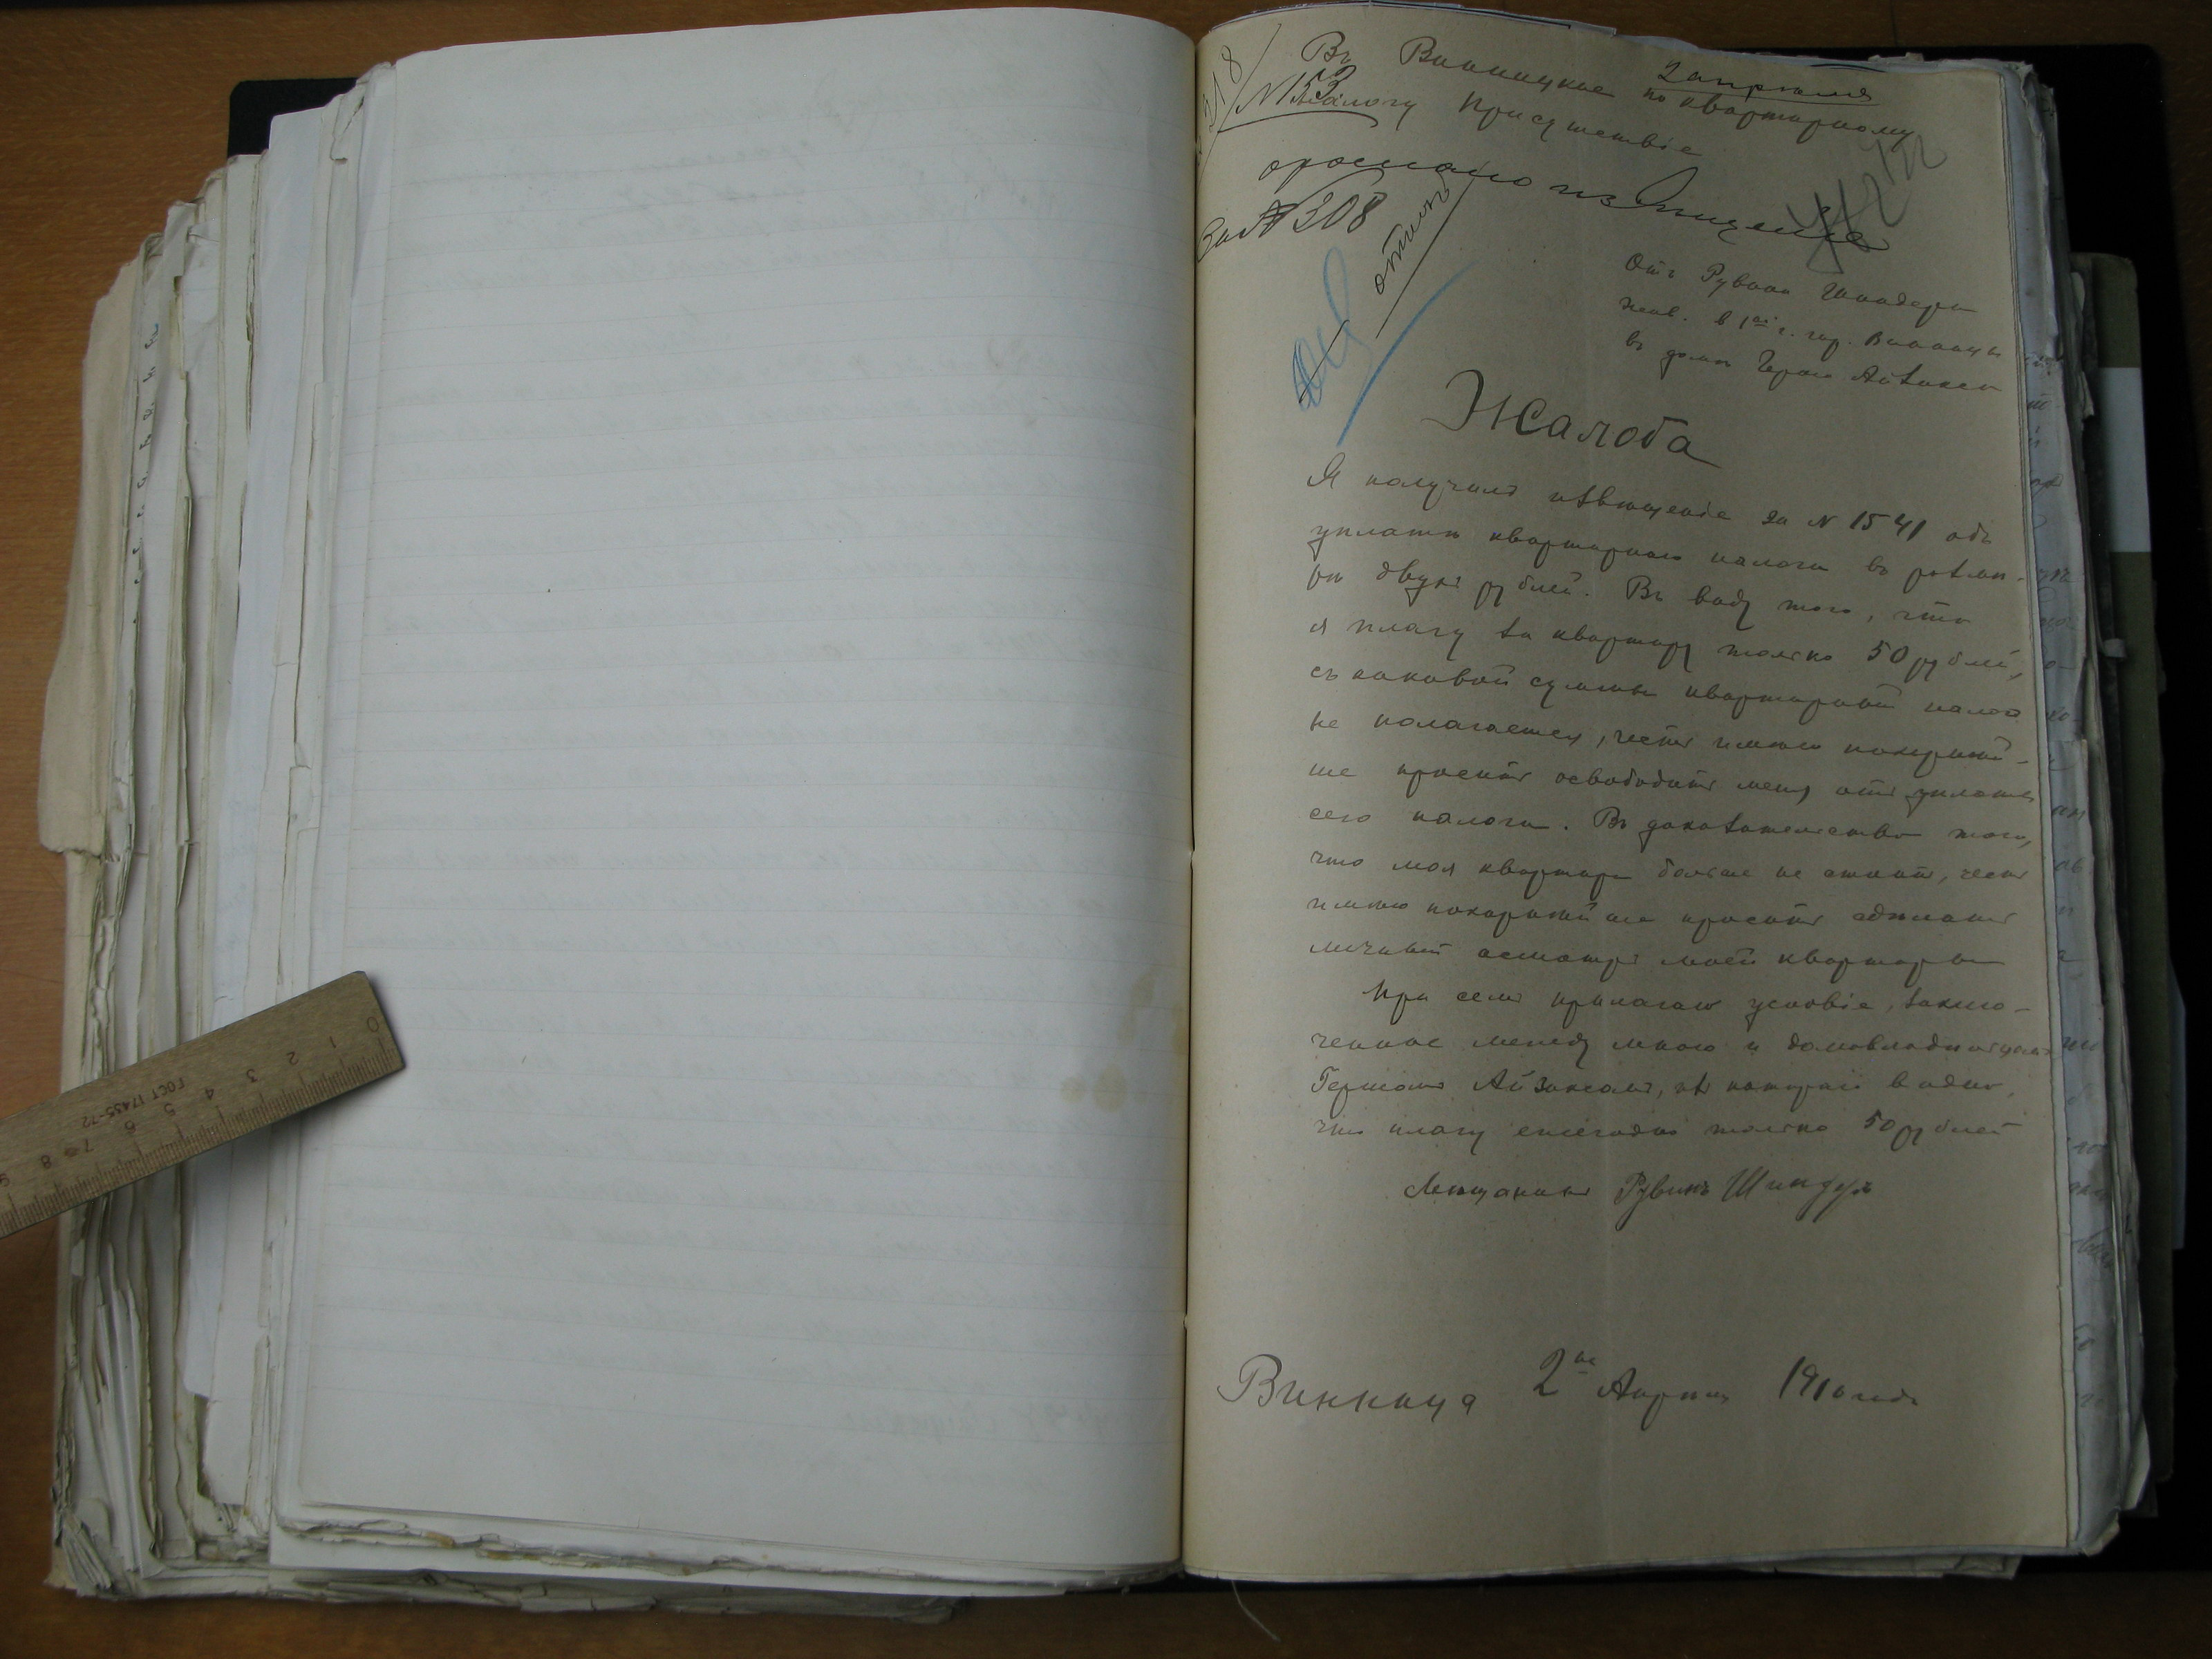 2 апрѣля
Въ Винницкое по квартирному
№ 153
налогу Присутствіе
За № 308
Отъ Рувина Шиндера
жив. в 1ой ч. гор. Винницы
въ домѣ Герша Айзакса
Жалоба
Я получилъ извѣщеніе за № 1541 объ
уплатѣ квартирнаго налога въ размѣ-
рѣ двухъ рублей. Въ виду того, что
я плачу за квартиру только 50 рублей,
съ каковой суммы квартирный налогъ
не полагается, честь имѣю покорнѣй-
ше просить освободить меня отъ уплаты
сего налога. Въ доказательство того,
что моя квартира больше не стоитъ, честь
имѣю покорнѣйше просить сдѣлать
личный осмотръ моей квартиры
При семъ прилагаю условіе, заклю-
ченное между мною и домовладѣльцемъ
Гершомъ Айзаксомъ, изъ котораго видно,
что плачу ежегодно только 50 рублей
Мѣщанинъ Рувинъ Шиндеръ
Винница 2го Апрѣля 1910 года
0 1 2 3 4 5 6 7 8 9
ГОСТ 17435-72